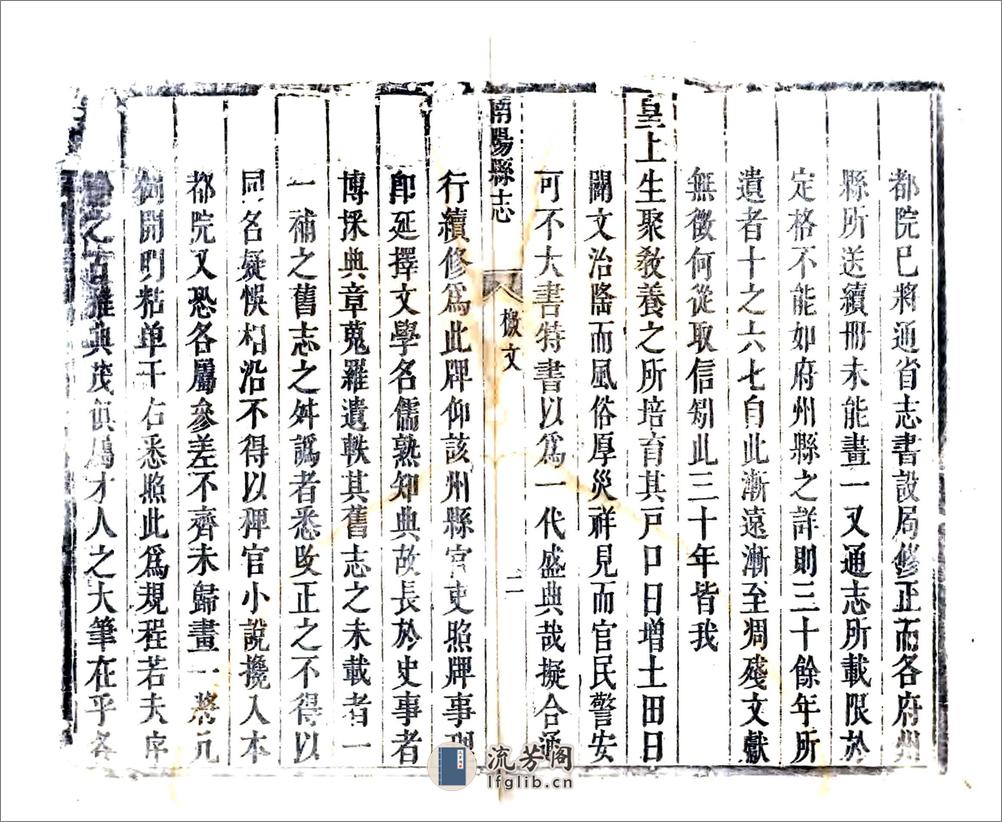 都院已將通省志書設局修正而各府州
縣所送續冊未能畫一又通志所載限於
定格不能如府州縣之詳則三十餘年所
遺者十之六七自此漸遠漸至凋殘文獻
無徵何從取信矧此三十年皆我
皇上生聚敎養之所培育其戸口日增土田日
闢文治隆而風俗厚災祥見而官民警安
可不大書特書以爲一代盛典哉擬合通
南陽縣志 檄文 二
行續修爲此牌仰該州縣官吏照牌事理
卽延擇文學名儒熟知典故長於史事者
博採典章蒐羅遺軼其舊志之未載者一
一補之舊志之舛譌者悉攺正之不得以
同名疑悞相沿不得以稗官小說攙入本
都院又恐各屬參差不齊未歸畫一將
開明粘单于右悉照此爲規程若夫序
之古雅典茂眞屬才人之大筆在乎各
流芳阁
lfglib.cn